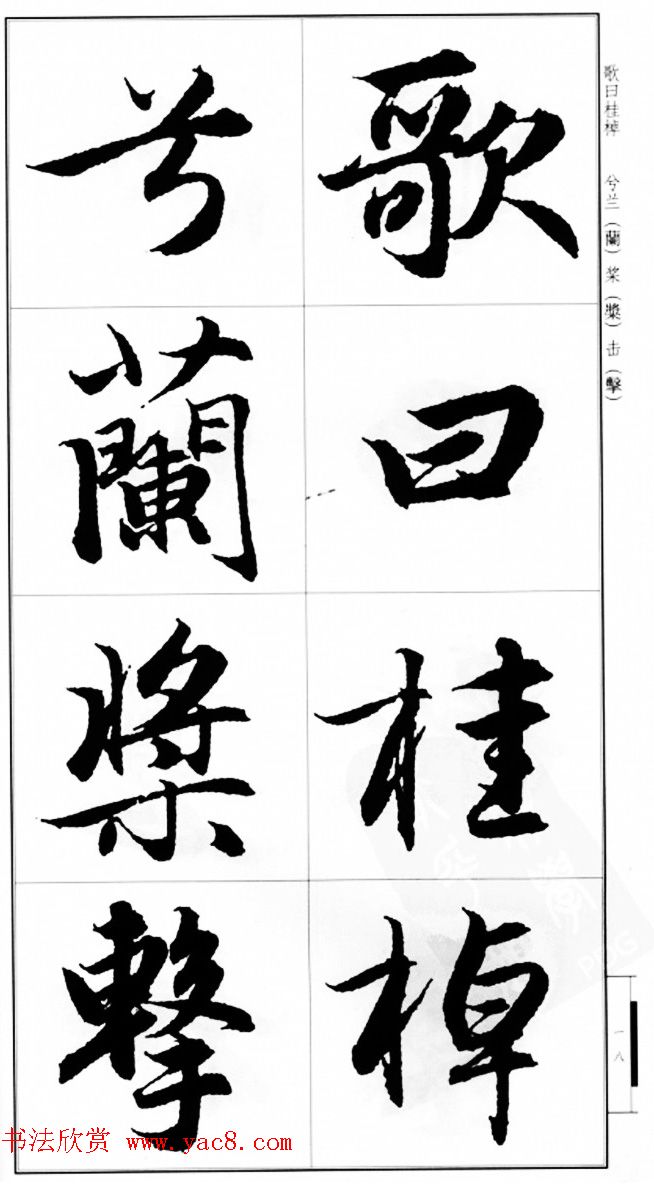 歌曰桂棹　兮兰（蘭）桨（槳）击（擊）
歌曰桂棹
兮蘭槳擊
一八
书法欣赏 www.yac8.com